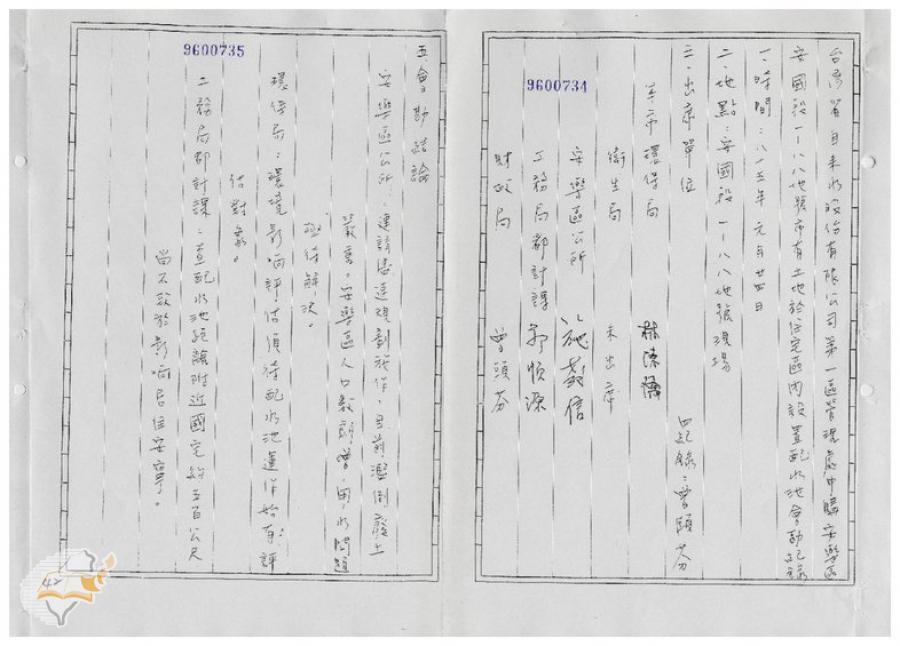 9600734
台灣省自來水股份有限公司第一區管理處申購安樂區
安國段一一八八地號市有土地於住宅區內設置配水池會勘紀錄
一、時間：八十五年元月廿四日
二、地點：安國段一一八八地號現場
三、出席單位 記錄：曾頭芬
本市環保局
衛生局 未出席
安樂區公所 施 信
工務局都計課 順源
財政局 曾頭芬
9600735
五、會勘結論
安樂區公所： 目前濫倒廢土
嚴重。安樂區人口數 ，用水問題
待解決。
環保局：環境影響評估須待配水池運作始有評
估對象。
工務局都計課：查配水池距離附近國宅約五百公尺
當不致於影響居住安寧。
42